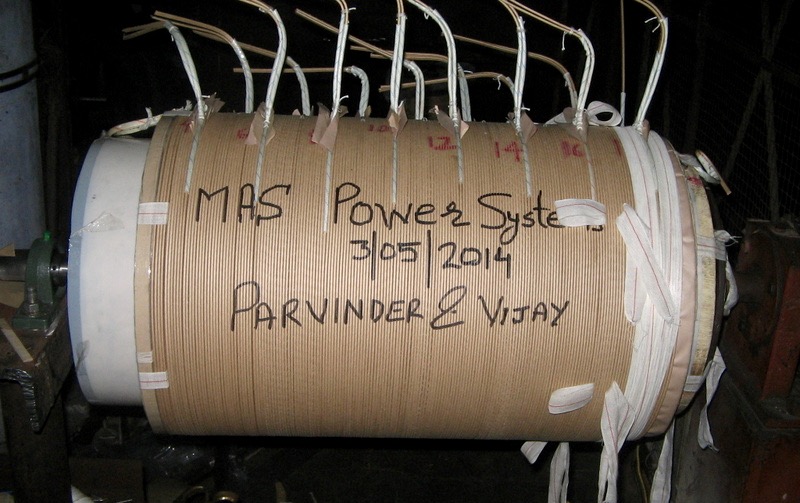 6 8 10 12 14 16 1
MAS Power Systems
3/05/2014
PARVINDER & VIJAY